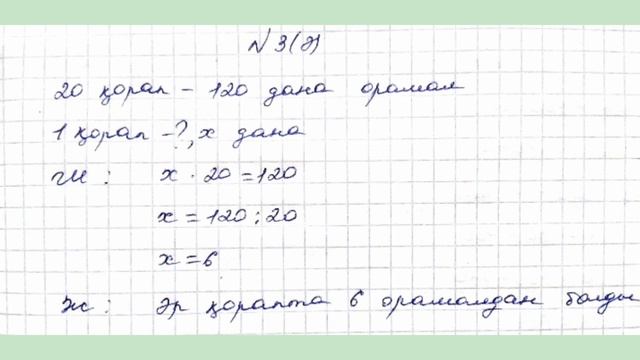 № 3(ә)
20 қорап - 120 дана орамал
1 қорап -?, х дана
ш: х · 20 = 120
х = 120 : 20
х = 6
Ж: Әр қорапта 6 орамалдан болды